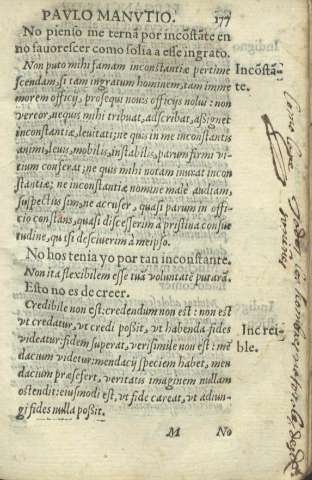 PAVLO MANVTIO. 177
No pienso me terna por incostāte en
no fauorescer como solia a esse ingrato.
Non puto mihi famam inconstantiæ pertime
scendam, si tam ingratum hominem, tam imme
morem officij, prosequi nouis officijs nolui: non
vereor, nequis mihi tribuat, adscribat, assignet
inconstantiæ, leuitati; ne quis in me inconstantis
animi, leuis, mobilis, instabilis, parum firmi vi-
tium conferat; ne quis mihi notam inurat incon
stantiæ; ne inconstantiæ nomine malè audiam,
suspectus sim, ne accuser, quasi parum in offi-
cio constans, quasi discesserim à pristina consue
tudine, quasi desciuerim à meipso.
Incōstā-
te.
No hos tenia yo por tan inconstante.
Non ita flexibilem esse tuā voluntatē putarā.
Esto no es de creer.
Credibile non est: credendum non est: non est
vt credatur, vt credi possit, vt habenda fides
videatur: fidem superat, verisimile non est: mē
dacium videtur: mendacij speciem habet, men
dacium præsefert, veritatis imaginem nullam
ostendit: eiusmodi est, vt fide careat, vt adiun-
gi fides nulla possit.
Increi-
ble.
M No